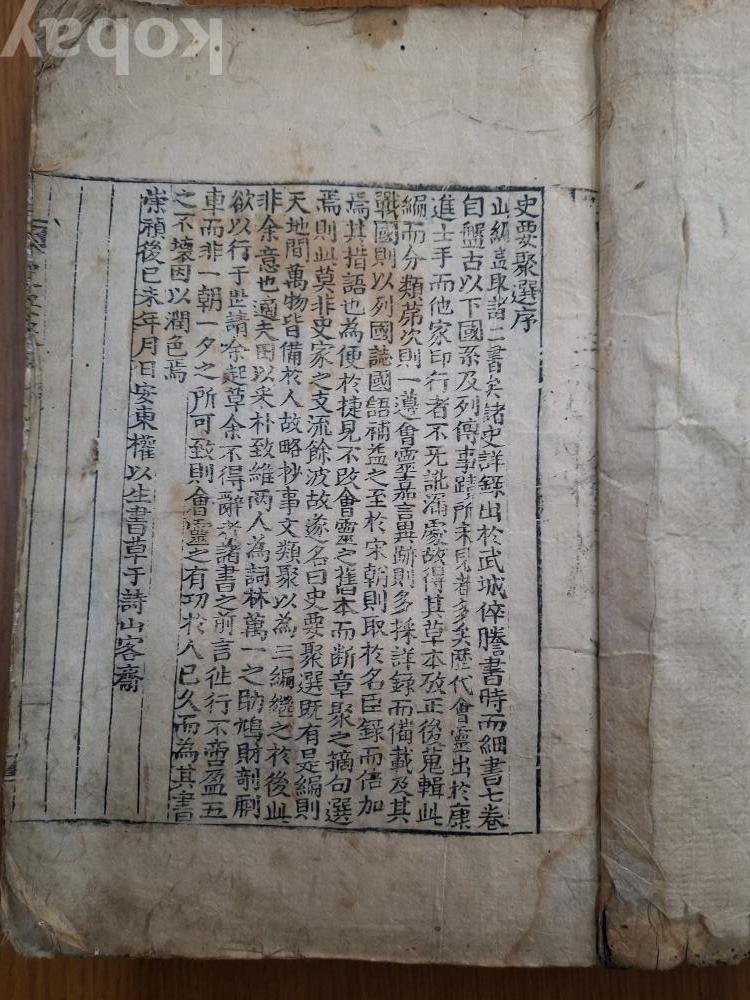 史要聚選序
此編盖取諸二書矣諸史詳錄出於武城倅謄書時而細書七卷
自盤古以下國系及列傳事蹟所未見者多矣歷代會靈出於康
進士手而他家印行者不无訛漏處故得其草本攷正後蒐輯此
編而分類第次則一遵會靈嘉言異跡則多採詳録而備載及其
戰國則以列國誌國語補益之至於宋朝則取於名臣錄而倍加
焉其措語也為便於捷見不改會靈之舊本而断章聚之摘句選
焉則此莫非史家之支流餘波故遂名曰史要聚選既有是編則
天地間萬物皆備於人故略抄事文類聚以為三編継之於後此
非余意也適夫田以采朴致維两人為詞林萬一之助鳩財剞劂
欲以行于世請余起草余不得辭考諸書之前言徃行不啻盈五
車而非一朝一夕之所可致則會靈之有功於人已久而為其書
之不壞因以潤色焉
崇禎後己未年月日安東權以生書草于詩山客齋
kobay